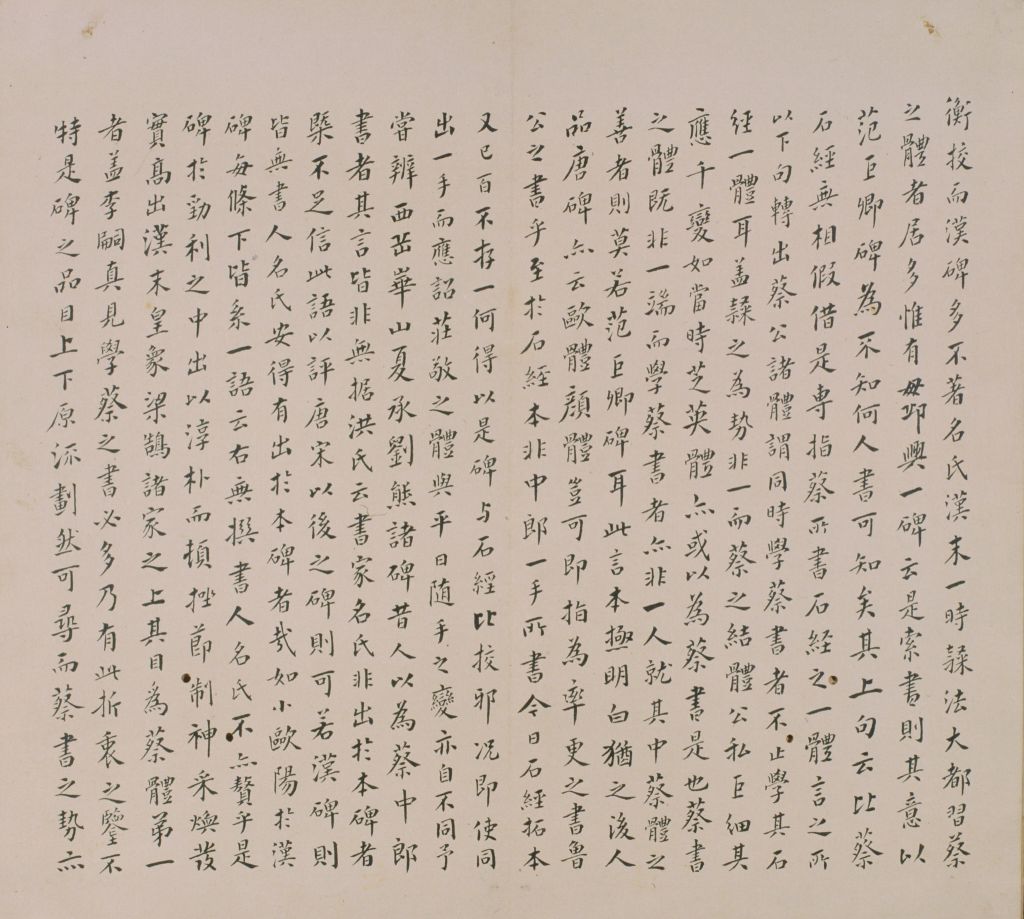 衡挍而漢碑多不著名氏漢末一時隸法大都習蔡
之體者居多惟有毋邱興一碑云是索書則其意以
范巨卿碑為不知何人書可知矣其上句云比蔡
石經無相假借是専指蔡所書石経之一體言之所
以下句轉出蔡公諸體謂同時學蔡書者不止學其石
經一體耳盖隸之為勢非一而蔡之結體公私巨細其
應千變如當時芝英體亦或以為蔡書是也蔡書
之體既非一端而學蔡書者亦非一人就其中蔡體之
善者則莫若范巨卿碑耳此言本極明白猶之後人
品唐碑亦云歐體顔體豈可即指為率更之書魯
公之書乎至於石經本非中郎一手所書今日石經拓本
又已百不存一何得以是碑与石經比挍邪况即使同
出一手而應詔莊敬之體與平日随手之變亦自不同予
嘗辨西岳華山夏承劉熊諸碑昔人以為蔡中郎
書者其言皆非無据洪氏云書家名氏非出於本碑者
槩不足信此語以評唐宋以後之碑則可若漢碑則
皆無書人名氏安得有出於本碑者哉如小歐陽於漢
碑每條下皆系一語云右無撰書人名氏不亦贅乎是
碑於勁利之中出以淳朴而頓挫節制神采煥發
實高出漢末皇象梁鵠諸家之上其目為蔡體第一
者盖李嗣真見學蔡之書必多乃有此折衷之鑒不
特是碑之品目上下原流劃然可尋而蔡書之勢亦